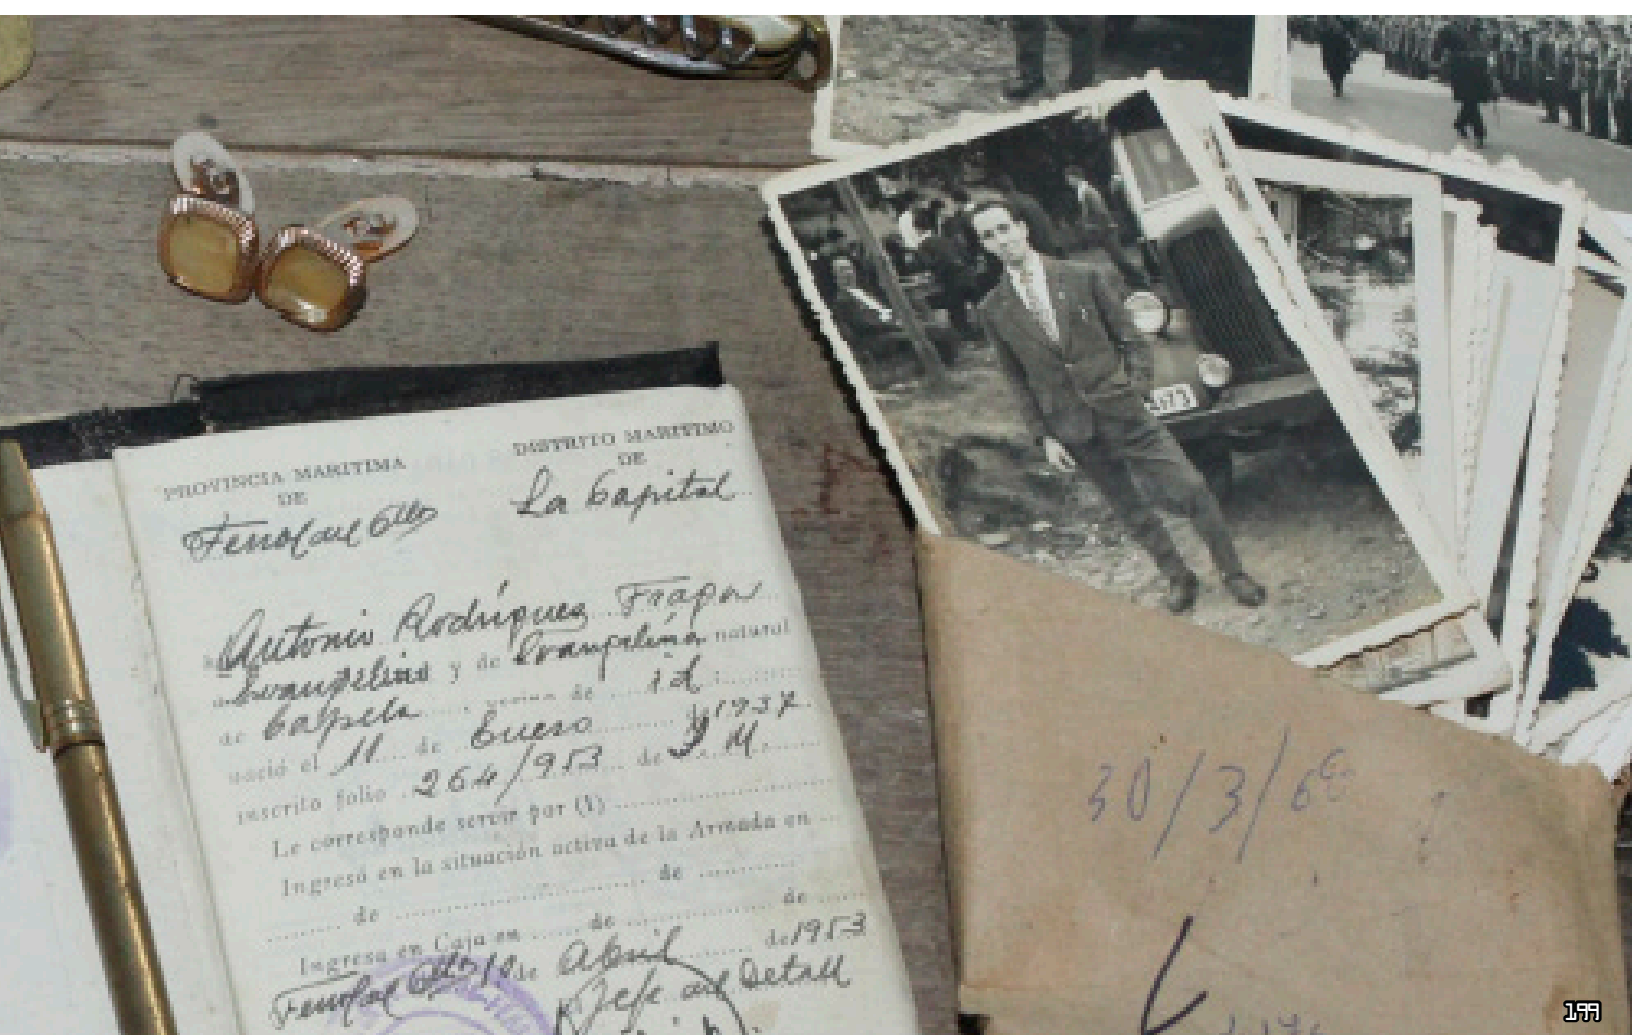 PROVINCIA MARITIMA
DE
Ferrol del Cllo
DISTRITO MARITIMO
DE
La Capital
Antonio Rodríguez Fraga
Evangelino y de Evangelina natural
de Capela vecino de id
nació el 11 de Enero de 1937
inscrito folio 264/953 de I M
Le corresponde servir por (1)
Ingresó en la situación activa de la Armada en
de de
Ingresa en Caja en de de
Ferrol del Cllo 10 de Abril de 1953
Jefe del Detall
4173
30/3/66
199